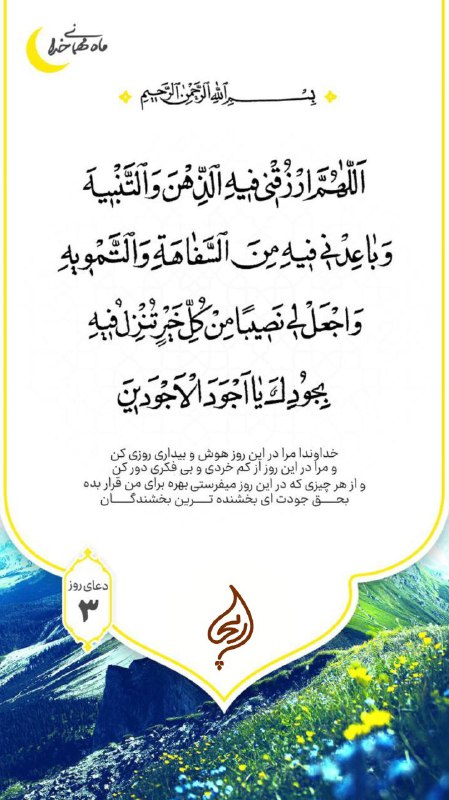 ماه مهمانی خدا
بِسْمِ ٱللَّٰهِ ٱلرَّحْمَٰنِ ٱلرَّحِيمِ
اَللّٰهُمَّ ارْزُقْنی فیهِ الذِّهْنَ وَالتَّنْبیهَ
وَباعِدْنی فیهِ مِنَ السَّفاهَةِ وَالتَّمْویهِ
وَاجْعَلْ لی نَصیبًا مِنْ كُلِّ خَیْرٍ تُنْزِلُ فیهِ
بِجودِكَ یا اَجْوَدَ الْاَجْوَدینَ
خداوندا مرا در این روز هوش و بیداری روزی کن
و مرا در این روز از کم خردی و بی فکری دور کن
و از هر چیزی که در این روز میفرستی بهره برای من قرار بده
بحق جودت ای بخشنده ترین بخشندگان
دعای روز
۳